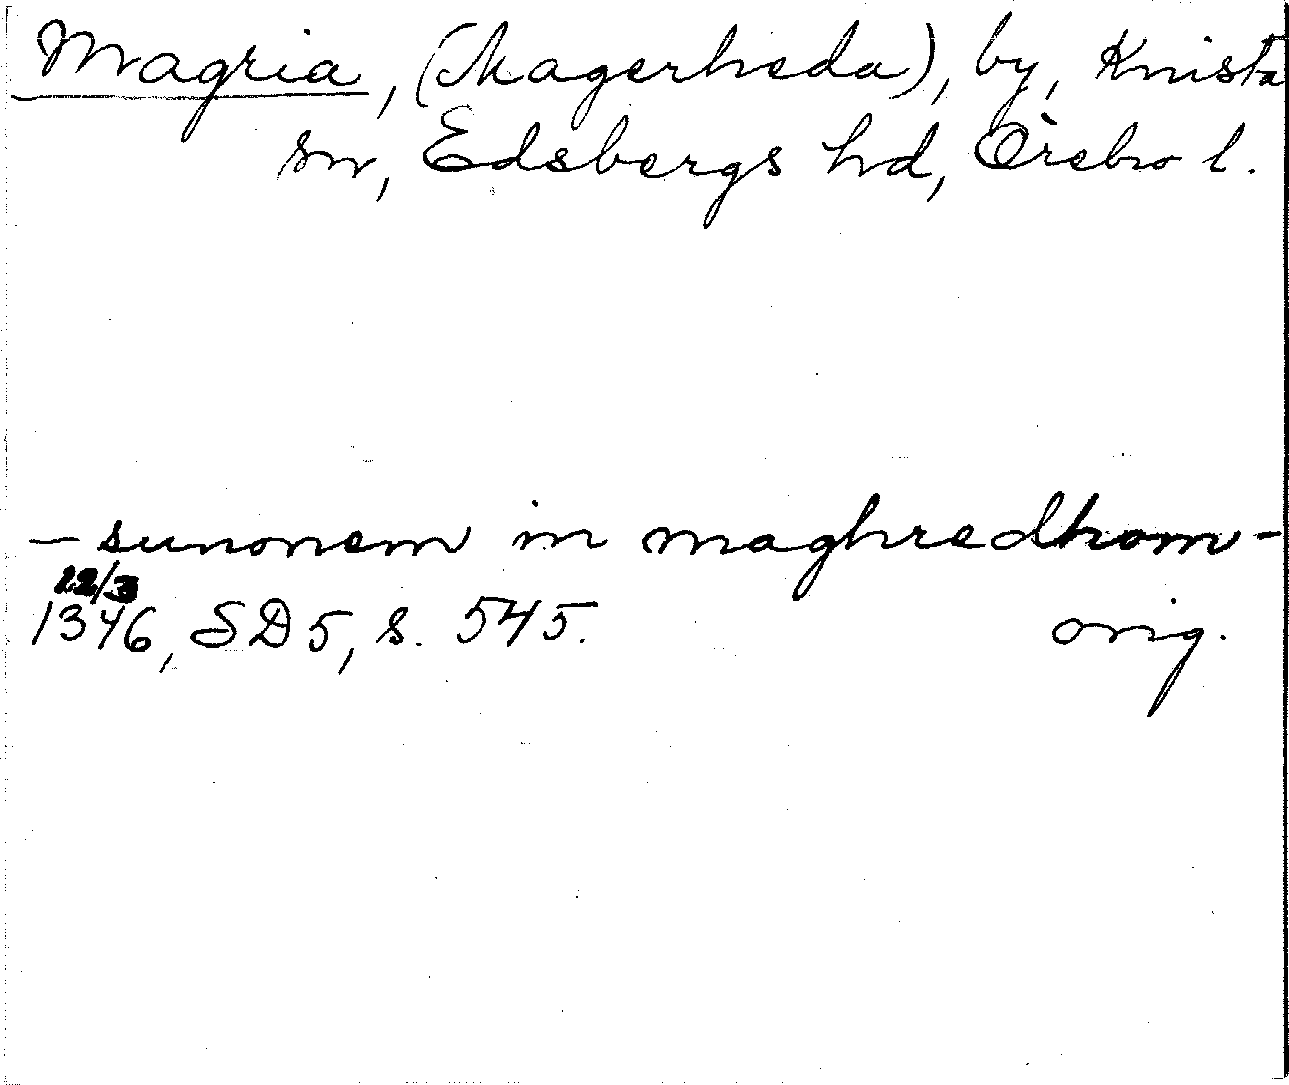 Magria, (Magerheda), by, Knista
sn, Edsbergs hd, Örebro l.
— sunonem in maghredhom -
22/3
1346, SD 5, s. 545. orig.